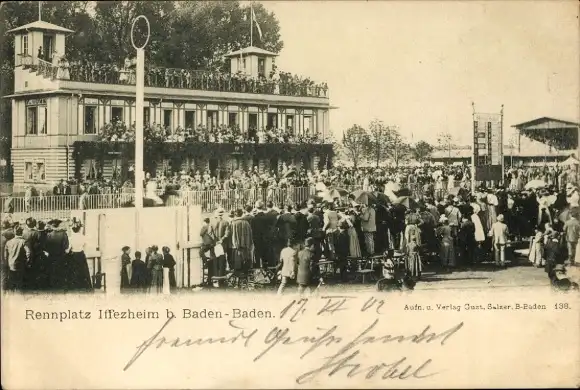 Rennplatz Iffezheim b. Baden-Baden.
17. VI 02
Aufn. u. Verlag Gust. Salzer. B-Baden 138.
sendet
Strobel